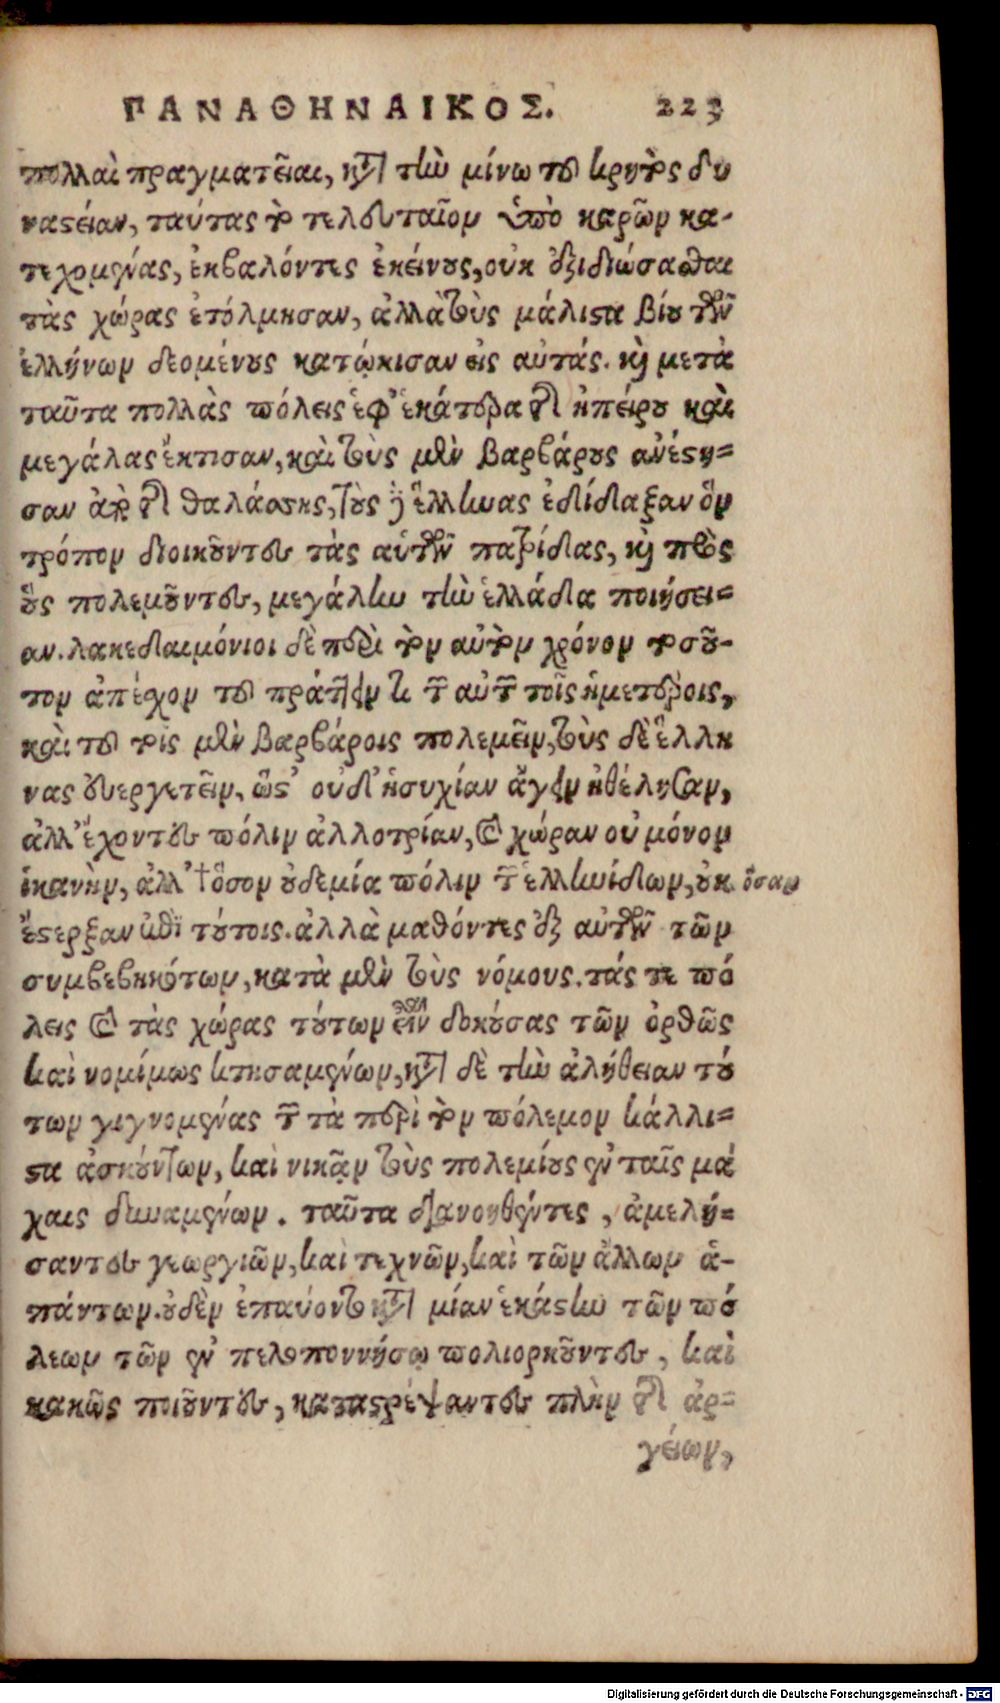 ΠΑΝΑΘΗΝΑΙΚΟΣ. 223
πολλαὶ πραγματεῖαι, κατὰ τὴν μίνω τοῦ κρητὸς δυ
ναστείαν, ταύτας τὸ τελευταῖον ὑπὸ καρῶν κα-
τεχομένας, ἐκβαλόντες ἐκείνους, οὐκ ἐξιδιώσασθαι
τὰς χώρας ἐτόλμησαν, ἀλλὰ τοὺς μάλιστα βίου τῶν
ἑλλήνων δεομένους κατῴκισαν εἰς αὐτάς. καὶ μετὰ
ταῦτα πολλὰς πόλεις ἐφ' ἑκάτερα τῆς ἠπείρου καὶ
μεγάλας ἔκτισαν, καὶ τοὺς μὲν βαρβάρους ἀνέστη-
σαν ἀπὸ τῆς θαλάσσης, τοὺς δ' ἕλληνας ἐδίδαξαν ὃν
τρόπον διοικοῦντες τὰς αὑτῶν πατρίδας, καὶ πρὸς
οὓς πολεμοῦντες, μεγάλην τὴν ἑλλάδα ποιήσει-
αν. λακεδαιμόνιοι δὲ περὶ τὸν αὐτὸν χρόνον τοσοῦ-
τον ἀπέχον τοῦ πράττειν τι τῶν αὐτῶν τοῖς ἡμετέροις,
καὶ τοῦ τοῖς μὲν βαρβάροις πολεμεῖν, τοὺς δὲ ἕλλη
νας εὐεργετεῖν, ὥστ' οὐδ' ἡσυχίαν ἄγειν ἠθέλησαν,
ἀλλ' ἔχοντες πόλιν ἀλλοτρίαν, καὶ χώραν οὐ μόνον
ἱκανὴν, ἀλλ' †ὅσον οὐδεμία πόλιν τῶν ἑλληνίδων, οὐκ ὅσαν
ἔστερξαν ἐπὶ τούτοις. ἀλλὰ μαθόντες ἐξ αὐτῶν τῶν
συμβεβηκότων, κατὰ μὲν τοὺς νόμους. τάς τε πό
λεις καὶ τὰς χώρας τούτων εἶναι δοκούσας τῶν ὀρθῶς
καὶ νομίμως κτησαμένων, κατὰ δὲ τὴν ἀλήθειαν τού
των γιγνομένας τῶν τὰ περὶ τὸν πόλεμον κάλλι-
στα ἀσκούντων, καὶ νικᾷν τοὺς πολεμίους ἐν ταῖς μά
χαις δυναμένων. ταῦτα διανοηθέντες, ἀμελή-
σαντες γεωργιῶν, καὶ τεχνῶν, καὶ τῶν ἄλλων ἁ-
πάντων. οὐδὲν ἐπαύοντο κατὰ μίαν ἑκάστην τῶν πό
λεων τῶν ἐν πελοποννήσῳ πολιορκοῦντες, καὶ
κακῶς ποιοῦντες, καταστρέψαντες πλὴν τῆς ἀρ-
γείων,
Digitalisierung gefördert durch die Deutsche Forschungsgemeinschaft - DFG